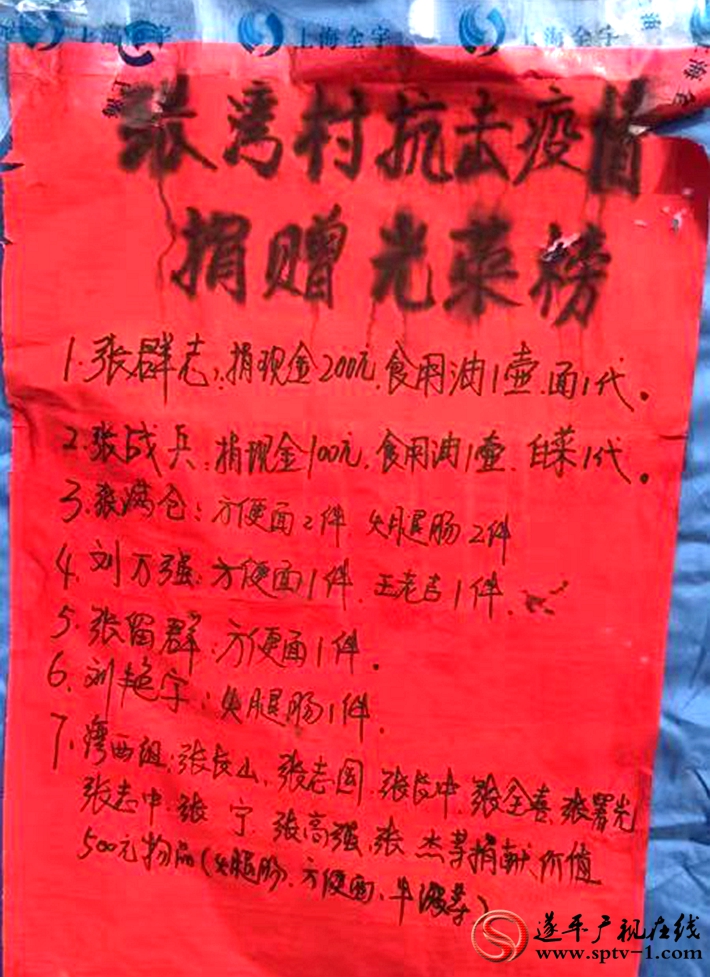 上海金宇
上海金宇
张湾村抗击疫情
捐赠光荣榜
1.张群志:捐现金200元.食用油1壶.面1代。
2.张成兵:捐现金100元.食用油1壶.白菜1代。
3.张满仓:方便面2件.火腿肠2件
4.刘万强:方便面1件.王老吉1件.
5.张留群:方便面1件.
6.刘艳宇:火腿肠1件.
7.湾西组:张长山.张志国.张长中.张全喜.张署光
张志中.张宁.张高强.张杰等捐献价值
500元物品(火腿肠.方便面.牛奶等)
遂平广视在线
www.sptv-1.com